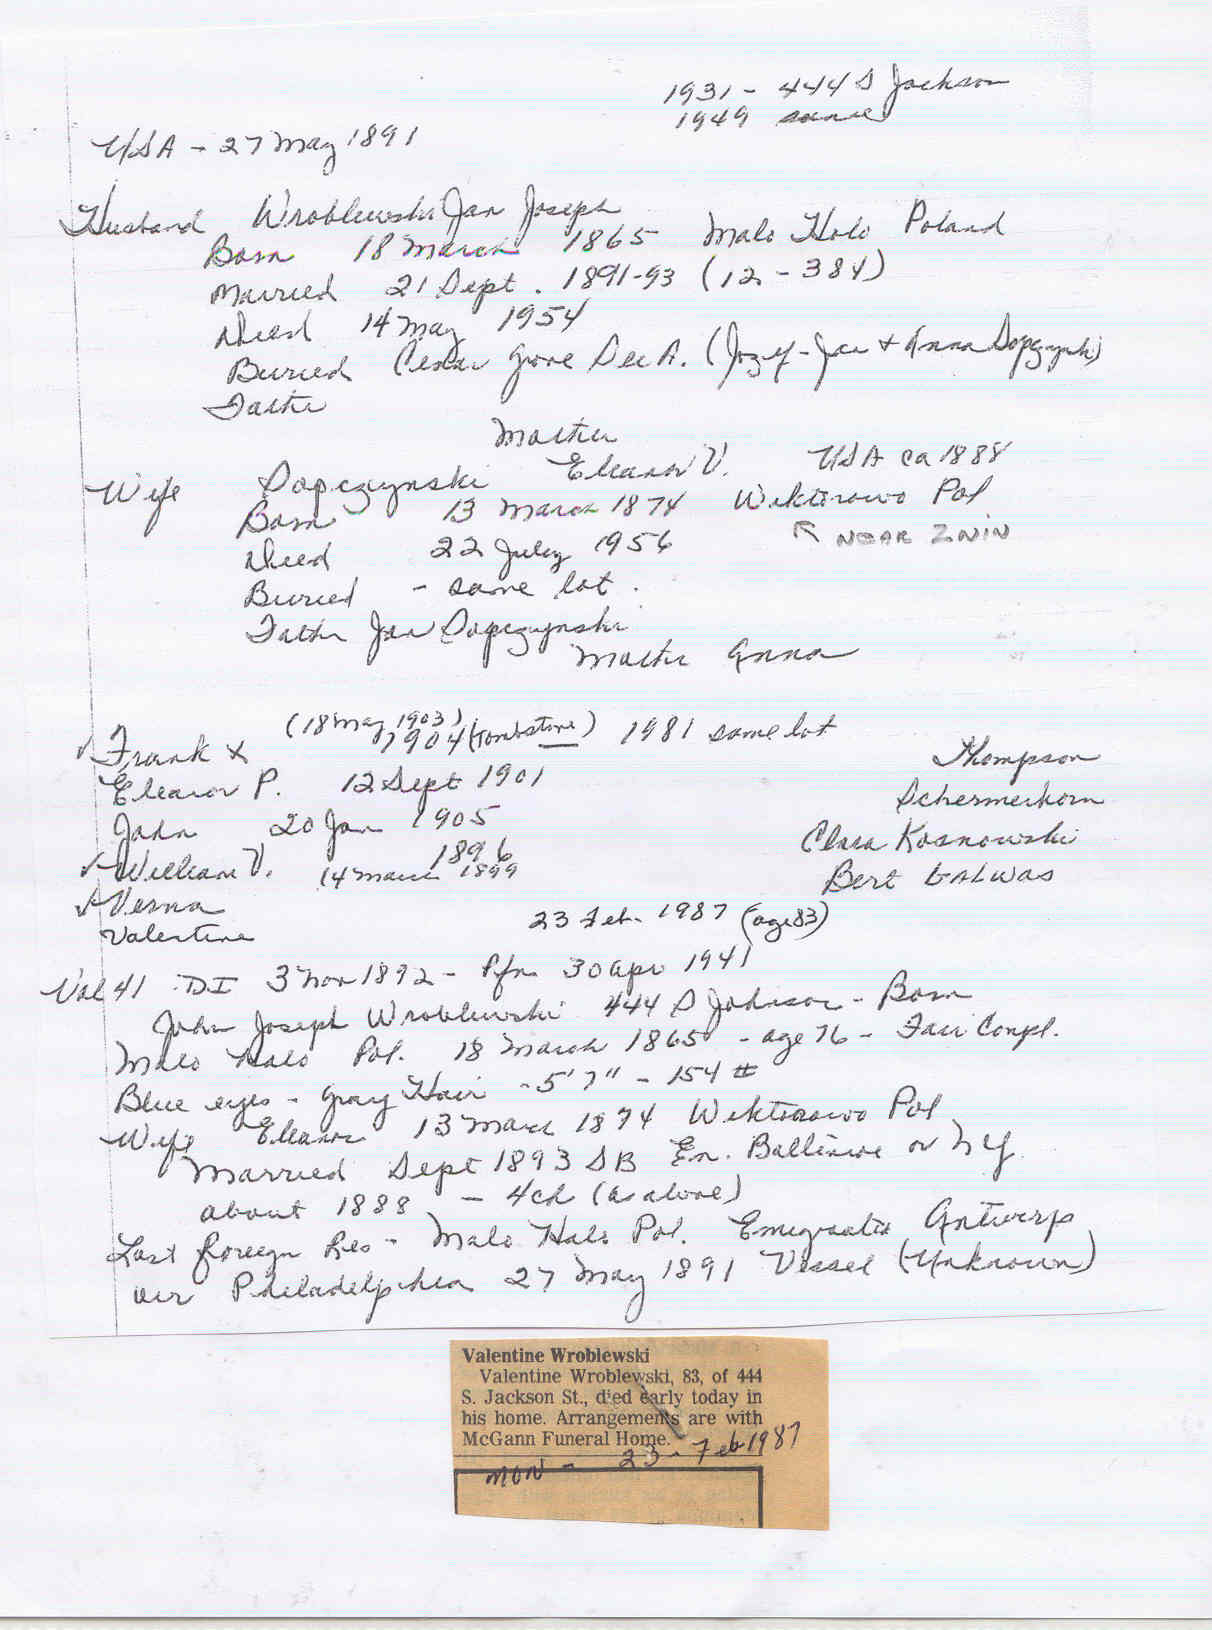 1931 - 444 S Jackson
1949 same
USA - 27 May 1891
Husband Wroblewski Jan Joseph
Born 18 March 1865 Malo Holo Poland
Married 21 Sept. 1891-93 (12-384)
Died 14 May 1954
Buried Cedar Grove Sec A. (Jozef-Jan + Anna Dopczynski)
Father
Mother
Wife Dopczynski Eleanor V. USA ca 1888
Born 13 March 1874 Wiktorowo Pol
NEAR ZNIN
Died 22 July 1956
Buried - same lot.
Father Jan Dopczynski
Mother Anna
(18 May 1903)
Frank X 1904 (Tombstone) 1981 same lot
Eleanor P. 12 Sept 1901 Thompson
John 20 Jan 1905 Schermerhorn
William V. 1896 Clara Kosnowski
14 March 1899
Verna Bert GALWAS
Valentine 23 Feb. 1987 (age 83)
Vol 41 DI 3 Nov 1892 - Ptn 30 Apr 1941
John Joseph Wroblewski 444 S Johnson - Born
Malo Halo Pol. 18 March 1865 - age 76 - Fair Compl.
Blue eyes - Gray Hair - 5'7" - 154 #
Wife Eleanor 13 Marc 1874 Wiktorowo Pol
Married Sept 1893 SB En. Baltimore or NY
about 1888 - 4 ch (as above)
Last foreign Res - Malo Halo Pol. Emigrated Antwerp
arr Philadelphia 27 May 1891 Vessel (Unknown)
Valentine Wroblewski
Valentine Wroblewski, 83, of 444
S. Jackson St., died early today in
his home. Arrangements are with
McGann Funeral Home.
MON - 23 - Feb 1987